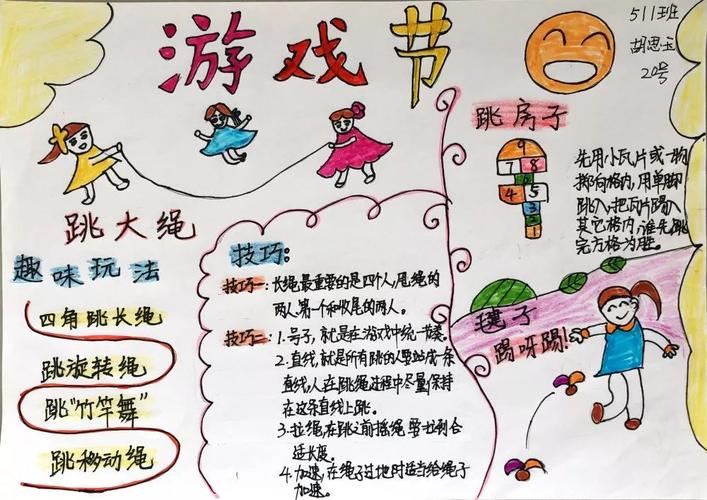 游戏节
511班
胡思玉
20号
跳大绳
趣味玩法
四角跳长绳
跳旋转绳
跳“竹竿舞”
跳移动绳
技巧:
技巧一:长绳最重要的是四个人,甩绳的
两人第一个和收尾的两人。
技巧二:1.号子,就是在游戏中统一节奏。
2.直线,就是所有跳的人要站成一条
直线,人在跳绳过程中尽量保持
在这条直线上跳。
3.拉绳,在跳之前摇绳要拉到合
适长度。
4.加速,在绳子过地时适当给绳子
加速。
跳房子
9
7 8
6
4 5
3
2
1
先用小瓦片或一物
掷向格内,用单脚
跳入,把瓦片踢入
其它格内,谁先跳
完方格为胜。
毽子
踢呀踢!